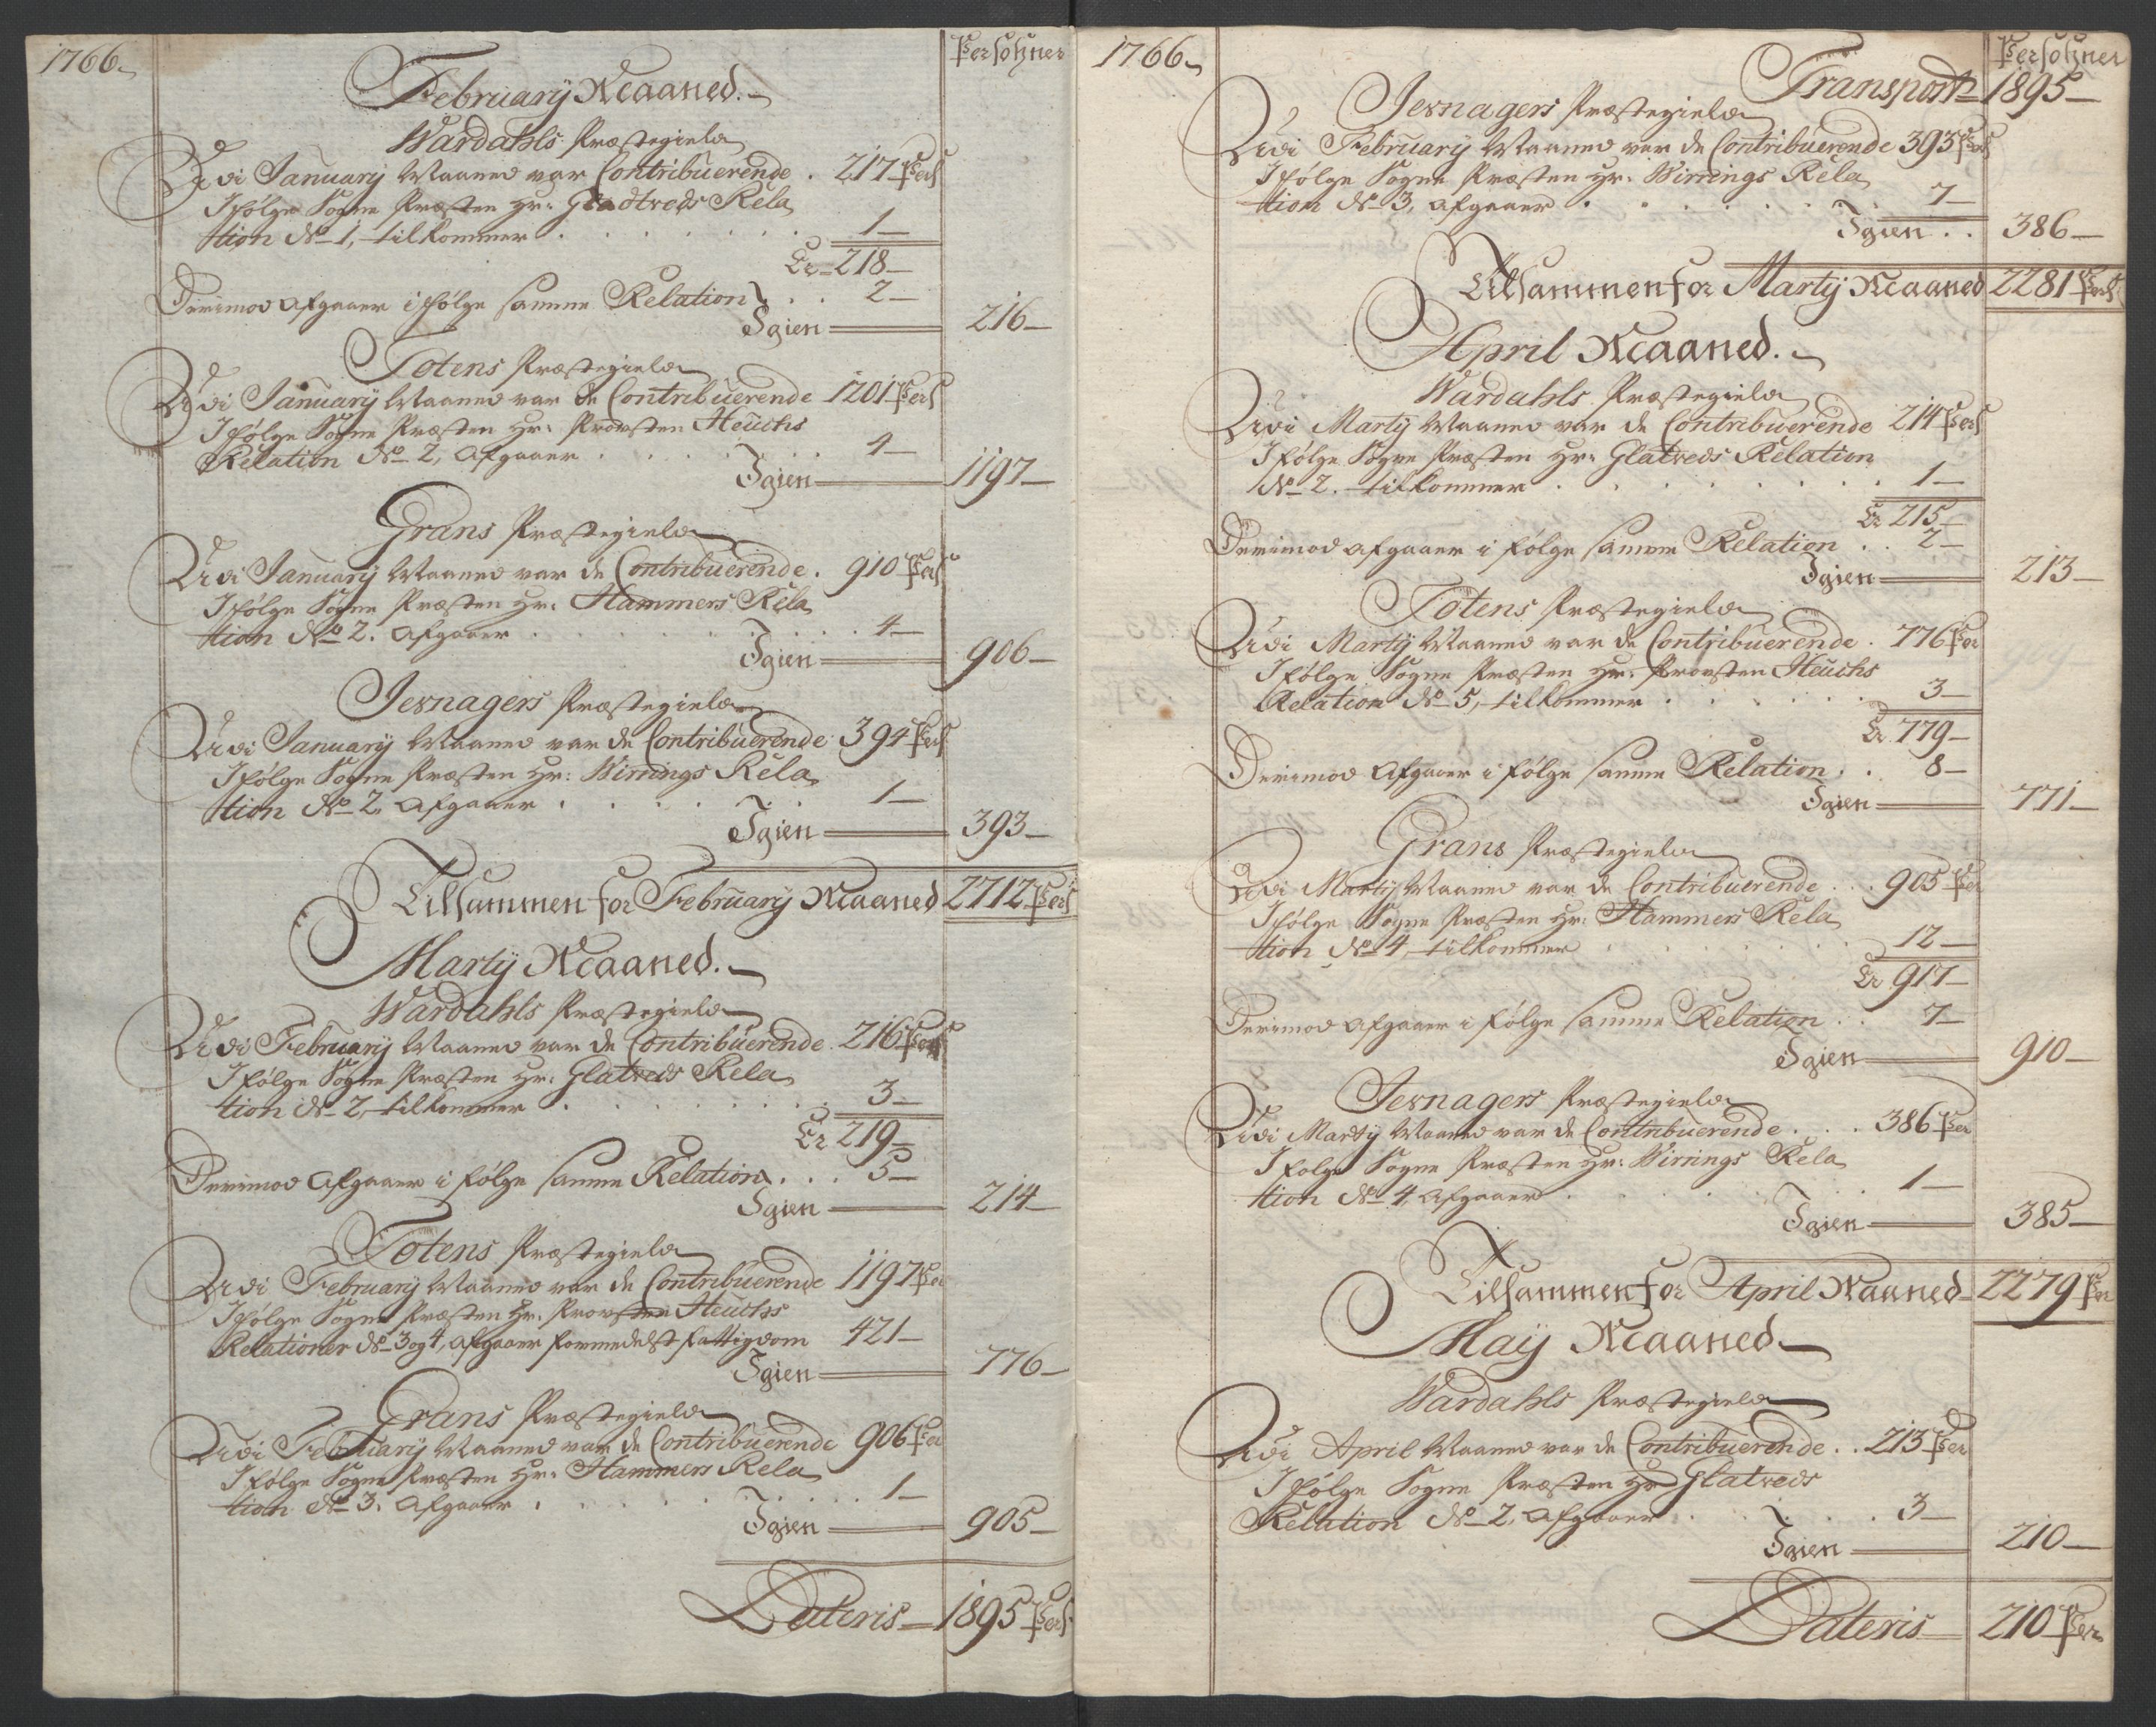 1766
Persohner
February Maaned.
Wardahls Præstegield
Udi January Maaned var Contribuerende . 217 Pers
I følge Sogne Præsten Hr: Gladtveds Rela
tion No 1, tilkommer . . . . . . . 1
Er 218
Derimod afgaaer i følge samme Relation . . 2
Igien 216
Totens Præstegield
Udi January Maaned var de Contribuerende 1201 Pers
I følge Sogne Præsten Hr: Provsten Heuchs
Relation No 2, afgaaer . . . . . . 4
Igien 1197
Grans Præstegield
Udi January Maaned var de Contribuerende . 910 Pers
I følge Sogne Præsten Hr: Hammers Rela
tion No 2. afgaaer . . . . . . . 4
Igien 906
Jevnagers Præstegield
Udi January Maaned var de Contribuerende 394 Pers
I følge Sogne Præsten Hr: Wirrings Rela
tion No 2. afgaaer . . . . . 1
Igien 393
Tilsammen for February Maaned 2712 Pers
Marty Maaned.
Wardahls Præstegield
Udi February Maaned var de Contribuerende 216 Pers
I følge Sogne Præsten Hr: Glatveds Rela
tion No 2, tilkommer . . . . . . . 3
Er 219
Derimod afgaaer i følge samme Relation . . . 5
Igien 214
Totens Præstegield
Udi February Maaned var de Contribuerende 1197 Per
I følge Sogne Præsten Hr. Provsten Heuchs
Relationer No 3 og 4, afgaaer formedelst fattigdom 421
Igien 776
Grans Præstegield
Udi February Maaned var de Contribuerende 906 Per
I følge Sogne Præsten Hr: Hammers Rela
tion No 3. afgaaer . . . . . . . 1
Igien 905
Lateris 1895 Pers
1766
Persohner
Transport 1895
Jevnagers Præstegield
Udi February Maaned var de Contribuerende 393 Pers
I følge Sogne Præsten Hr: Wirrings Rela
tion No 3, afgaaer . . . . . 7
Igien . . 386
Tilsammen for Marty Maaned 2281 Pers
April Maaned.
Wardahls Præstegield
Udi Marty Maaned var de Contribuerende 214 Pers
I følge Sogne Præsten Hr: Glatveds Relation
No 2. tilkommer . . . . . . . . 1
Er 215
Derimod afgaaer i følge samme Relation . . 2
Igien 213
Totens Præstegield
Udi Marty Maaned var de Contribuerende . 776 Per
I følge Sogne Præsten Hr: Provsten Heuchs
Relation No 5, tilkommer . . . . . 3
Er 779
Derimod afgaaer i følge samme Relation . . 8
Igien 771
Grans Præstegield
Udi Marty Maaned var de Contribuerende . . . 905 Per
I følge Sogne Præsten Hr: Hammers Rela
tion No 4 tilkommer . . . . . . 12
Er 917
Derimod afgaaer i følge samme Relation . . 7
Igien 910
Jevnagers Præstegield
Udi Marty Maaned var de Contribuerende . . . 386 Per
I følge Sogne Præsten Hr: Wirrings Rela
tion No 4, afgaaer . . . . . . 1
Igien 385
Tilsammen for April Maaned 2279 Per
May Maaned
Wardahls Præstegield
Udi April Maaned var de Contribuerende . . 213 Per
I følge Sogne Præsten Hr Glatveds
Relation No 2. afgaaer . . . . . . 3
Igien 210
Lateris 210 Per